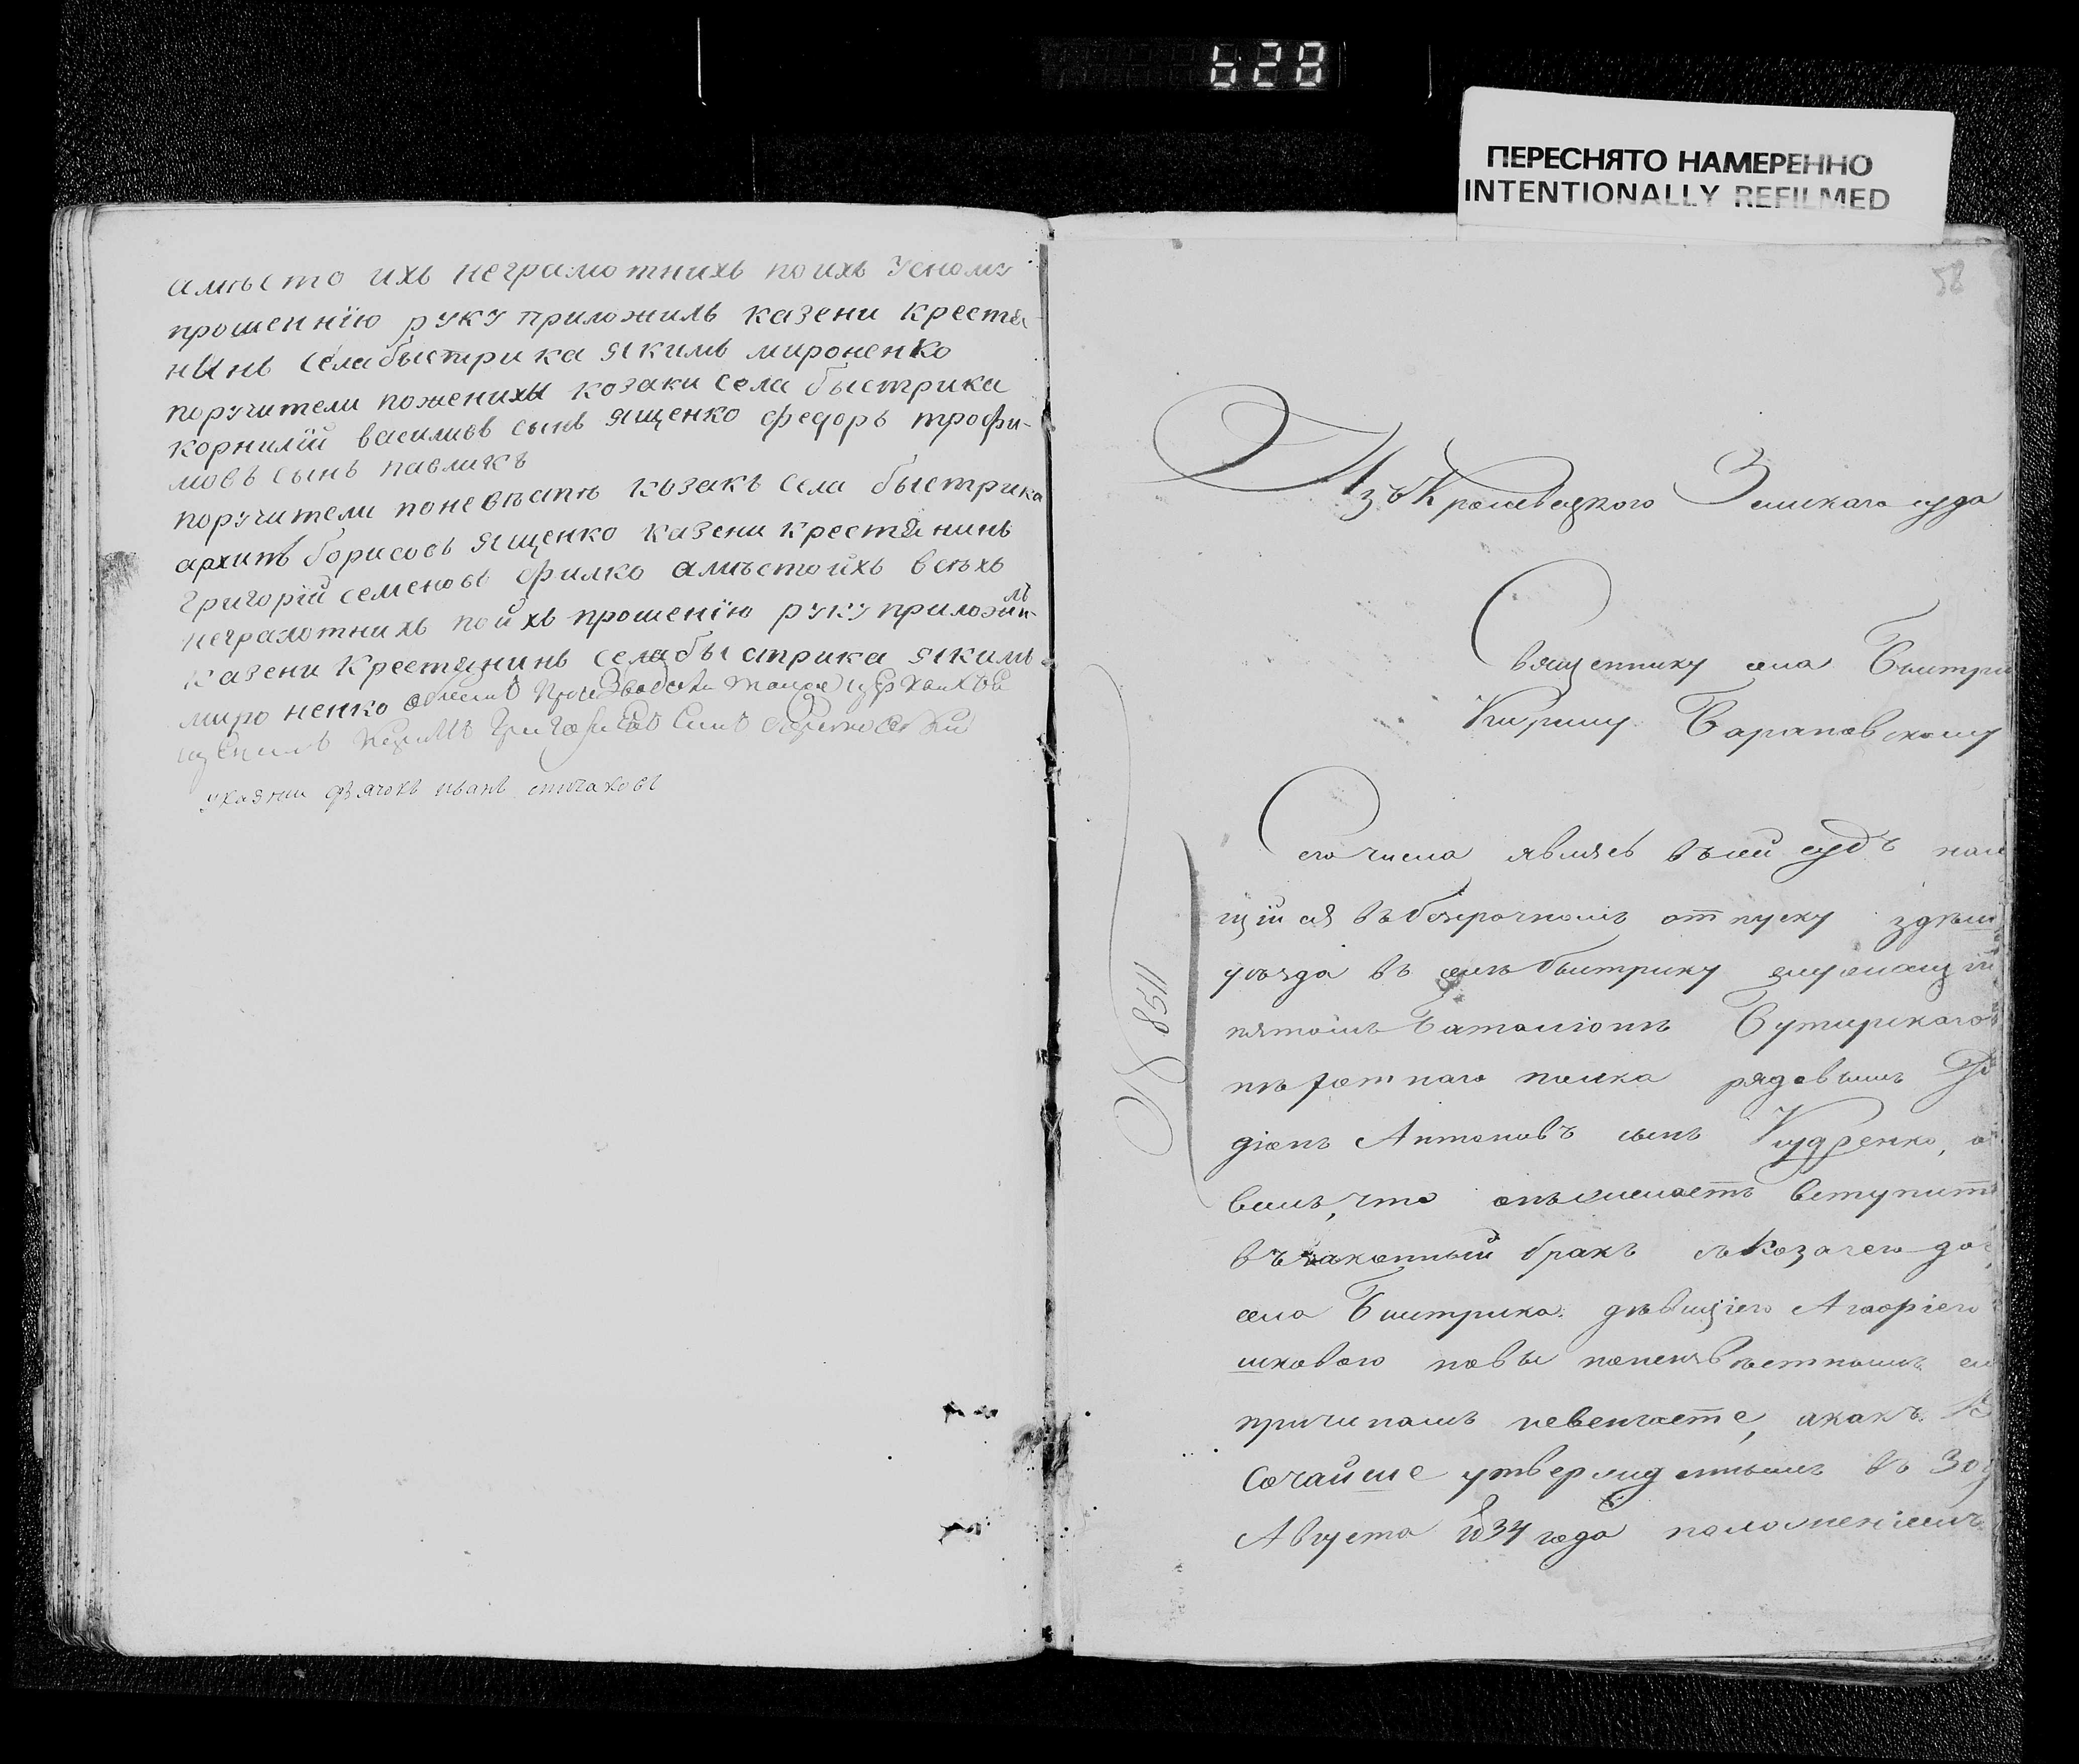 628
ПЕРЕСНЯТО НАМЕРЕННО
INTENTIONALLY REFILMED
амѣсто ихъ неграмотнихъ по ихъ усному
прошеннїю руку приложилъ казени крестя-
нынъ села быстрика якимъ мироненко
поручители поженихы козаки села быстрика
корнилїй василиевъ сынъ ященко федоръ трофи-
мовъ сынъ павликъ
поручители поневѣстѣ козакъ села быстрика
архипъ борисовъ ященко казени крестянинъ
григорїй семеновъ филко амѣсто ихъ всѣхъ
неграмотнихъ по ихъ прошенїю руку приложилъ
казени крестянинъ села быстрика якимъ
мироненко обыскъ производили тоя церкви
указнии дячокъ иванъ
58
Изъ Кролевецкого Земскаго суда
Священнику села Быстри
Кирилу
№ 8511
Сего числа являсь въ сей судъ нахо
щійся въ безсрочномъ отпуску здѣш
уѣзда въ селѣ Быстрику служащїй
пятомъ Баталіонѣ Бутирскаго
пѣхотнаго полка рядовымъ Ро
діонъ Антоновъ сынъ Кудренко, о
вилъ, что онъ желаетъ вступить
въ законный бракъ съ козачею до
села Быстрика дѣвицею
шковою но вы по неизвѣстнымъ ему
причинамъ невенчаете, а какъ В
сочайше утвержденнымъ въ 30 д
Августа 1834 года положеніемъ